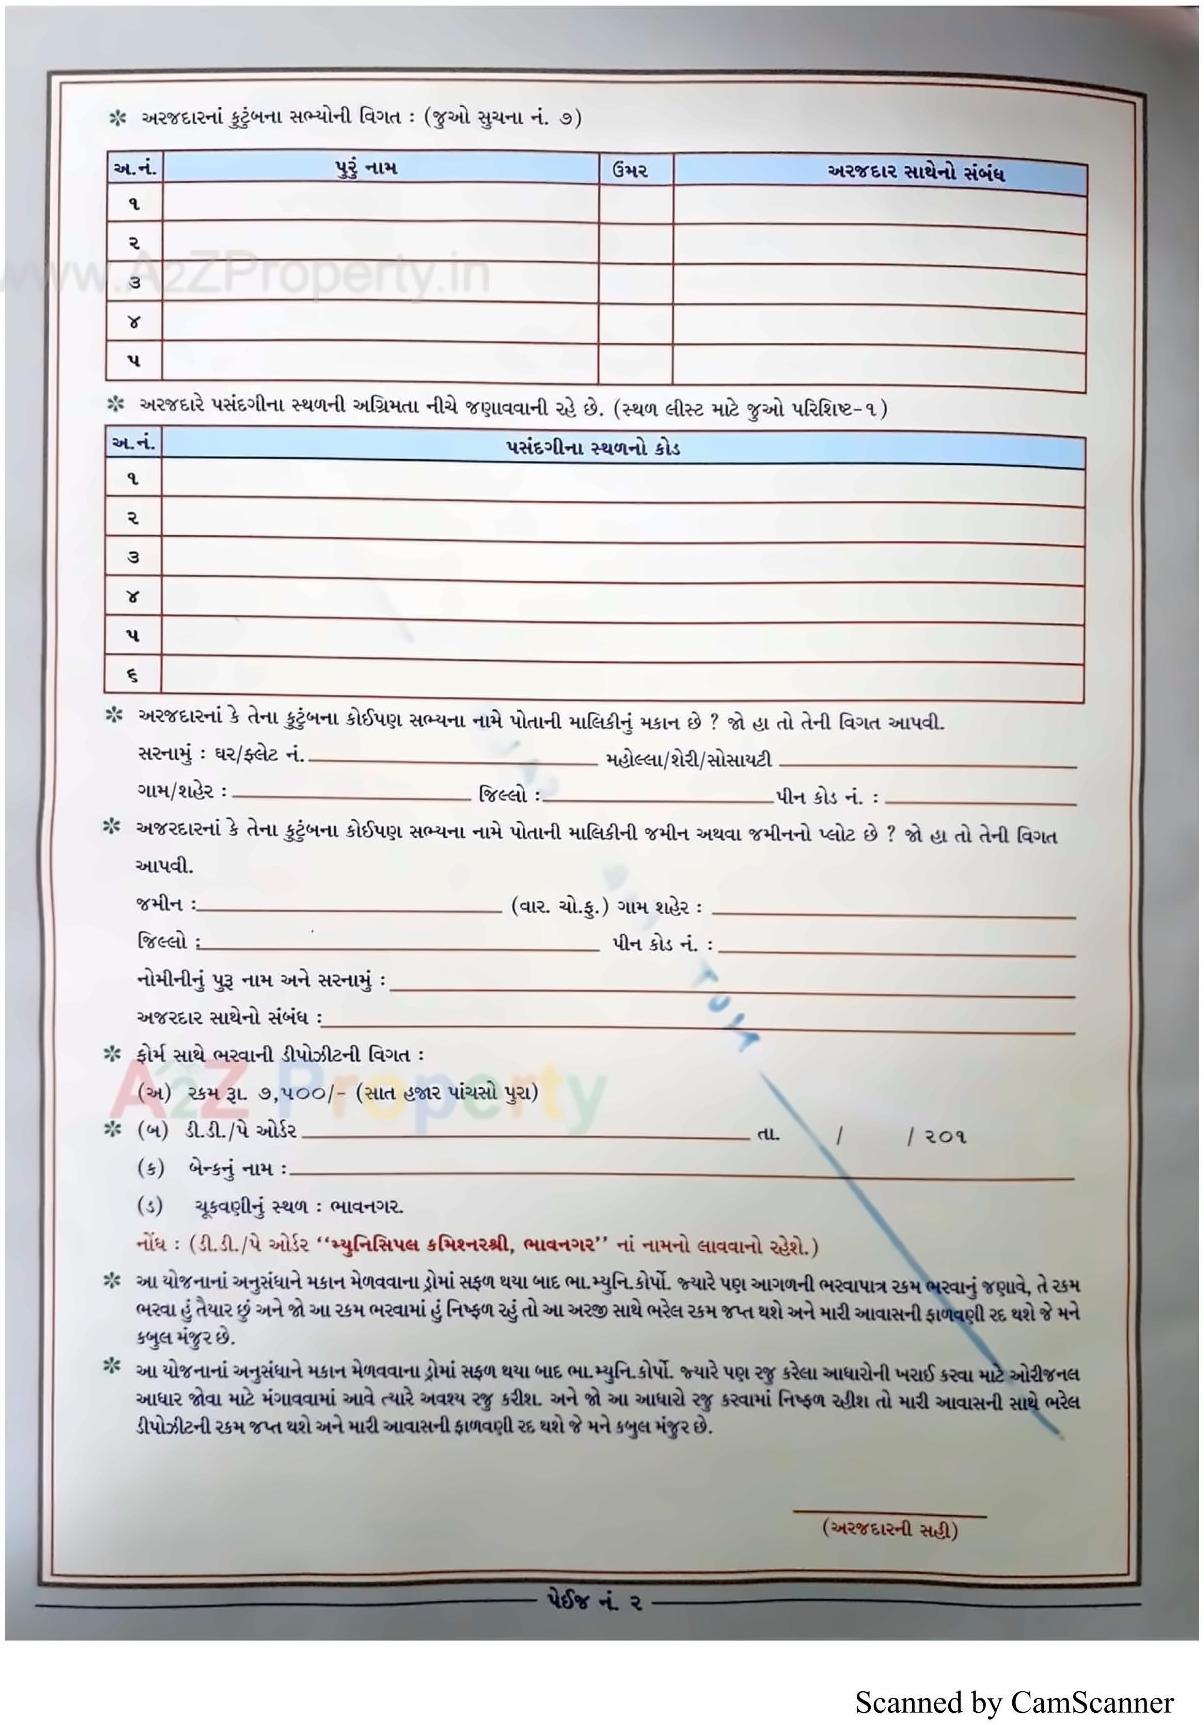 ✲ અરજદારનાં કુટુંબના સભ્યોની વિગત : (જુઓ સુચના નં. ૭)
અ.નં. પુરું નામ ઉંમર અરજદાર સાથેનો સંબંધ
૧
૨
www.A2ZProperty.in
૩
૪
૫
✲ અરજદારે પસંદગીના સ્થળની અગ્રિમતા નીચે જણાવવાની રહે છે. (સ્થળ લીસ્ટ માટે જુઓ પરિશિષ્ટ-૧)
અ.નં. પસંદગીના સ્થળનો કોડ
૧
૨
૩
૪
૫
૬
✲ અરજદારનાં કે તેના કુટુંબના કોઈપણ સભ્યના નામે પોતાની માલિકીનું મકાન છે ? જો હા તો તેની વિગત આપવી.
સરનામું : ઘર/ફ્લેટ નં. મહોલ્લા/શેરી/સોસાયટી
ગામ/શહેર : જિલ્લો : પીન કોડ નં. :
✲ અજરદારનાં કે તેના કુટુંબના કોઈપણ સભ્યના નામે પોતાની માલિકીની જમીન અથવા જમીનનો પ્લોટ છે ? જો હા તો તેની વિગત
આપવી.
જમીન : (વાર. ચો.ફુ.) ગામ શહેર :
જિલ્લો : પીન કોડ નં. :
નોમીનીનું પુરૂ નામ અને સરનામું :
અજરદાર સાથેનો સંબંધ :
✲ ફોર્મ સાથે ભરવાની ડીપોઝીટની વિગત :
A2Z Property
(અ) રકમ રૂા. ૭,૫૦૦/- (સાત હજાર પાંચસો પુરા)
✲ (બ) ડી.ડી./પે ઓર્ડર તા. / / ૨૦૧
(ક) બેન્કનું નામ :
(ડ) ચૂકવણીનું સ્થળ : ભાવનગર.
નોંધ : (ડી.ડી./પે ઓર્ડર “મ્યુનિસિપલ કમિશ્નરશ્રી, ભાવનગર” નાં નામનો લાવવાનો રહેશે.)
✲ આ યોજનાનાં અનુસંધાને મકાન મેળવવાના ડ્રોમાં સફળ થયા બાદ ભા.મ્યુનિ.કોર્પો. જ્યારે પણ આગળની ભરવાપાત્ર રકમ ભરવાનું જણાવે, તે રકમ
ભરવા હું તૈયાર છું અને જો આ રકમ ભરવામાં હું નિષ્ફળ રહું તો આ અરજી સાથે ભરેલ રકમ જપ્ત થશે અને મારી આવાસની ફાળવણી રદ થશે જે મને
કબુલ મંજુર છે.
✲ આ યોજનાનાં અનુસંધાને મકાન મેળવવાના ડ્રોમાં સફળ થયા બાદ ભા.મ્યુનિ.કોર્પો. જ્યારે પણ રજુ કરેલા આધારોની ખરાઈ કરવા માટે ઓરીજનલ
આધાર જોવા માટે મંગાવવામાં આવે ત્યારે અવશ્ય રજુ કરીશ. અને જો આ આધારો રજુ કરવામાં નિષ્ફળ રહીશ તો મારી આવાસની સાથે ભરેલ
ડીપોઝીટની રકમ જપ્ત થશે અને મારી આવાસની ફાળવણી રદ થશે જે મને કબુલ મંજુર છે.
(અરજદારની સહી)
પેઈજ નં. ૨
Scanned by CamScanner